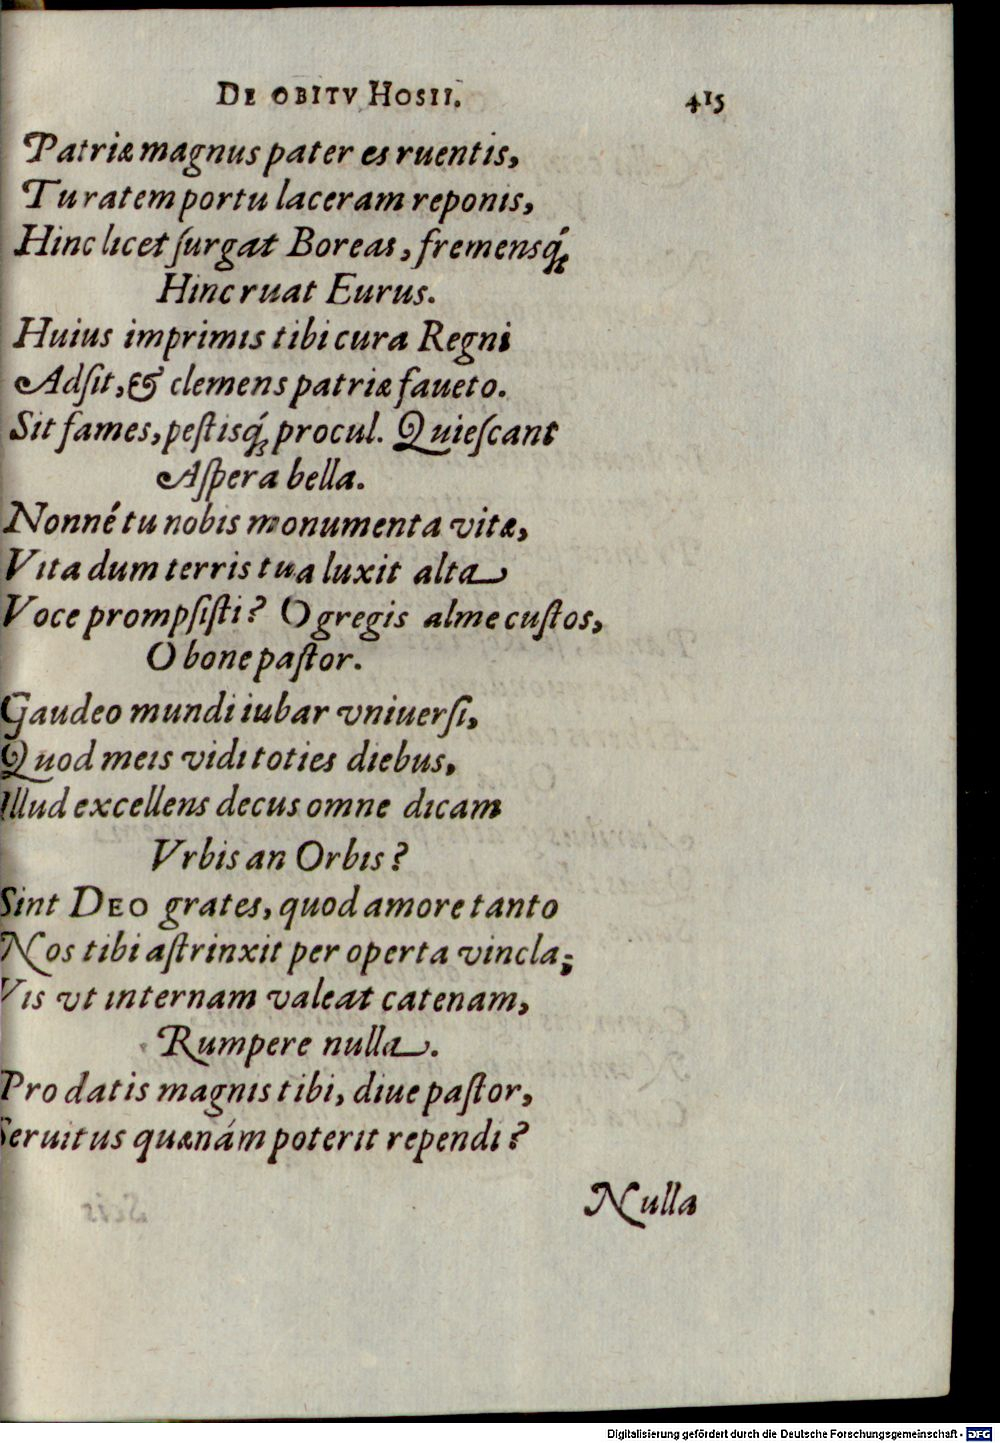 DE OBITV HOSII. 415
Patriæ magnus pater es ruentis,
Tu ratem portu laceram reponis,
Hinc licet ſurgat Boreas, fremensq́;
Hinc ruat Eurus.
Huius imprimis tibi cura Regni
Adſit, & clemens patriæ faueto.
Sit fames, peſtisq́; procul. Quieſcant
Aſpera bella.
Nonné tu nobis monumenta vitæ,
Vita dum terris tua luxit alta
Voce prompſiſti? O gregis alme cuſtos,
O bone paſtor.
Gaudeo mundi iubar vniuerſi,
Quod meis vidi toties diebus,
Illud excellens decus omne dicam
Vrbis an Orbis?
Sint DEO grates, quod amore tanto
Nos tibi aſtrinxit per operta vincla;
Vis vt internam valeat catenam,
Rumpere nulla.
Pro datis magnis tibi, diue paſtor,
Seruitus quænám poterit rependi?
Nulla
Digitalisierung gefördert durch die Deutsche Forschungsgemeinschaft - DFG